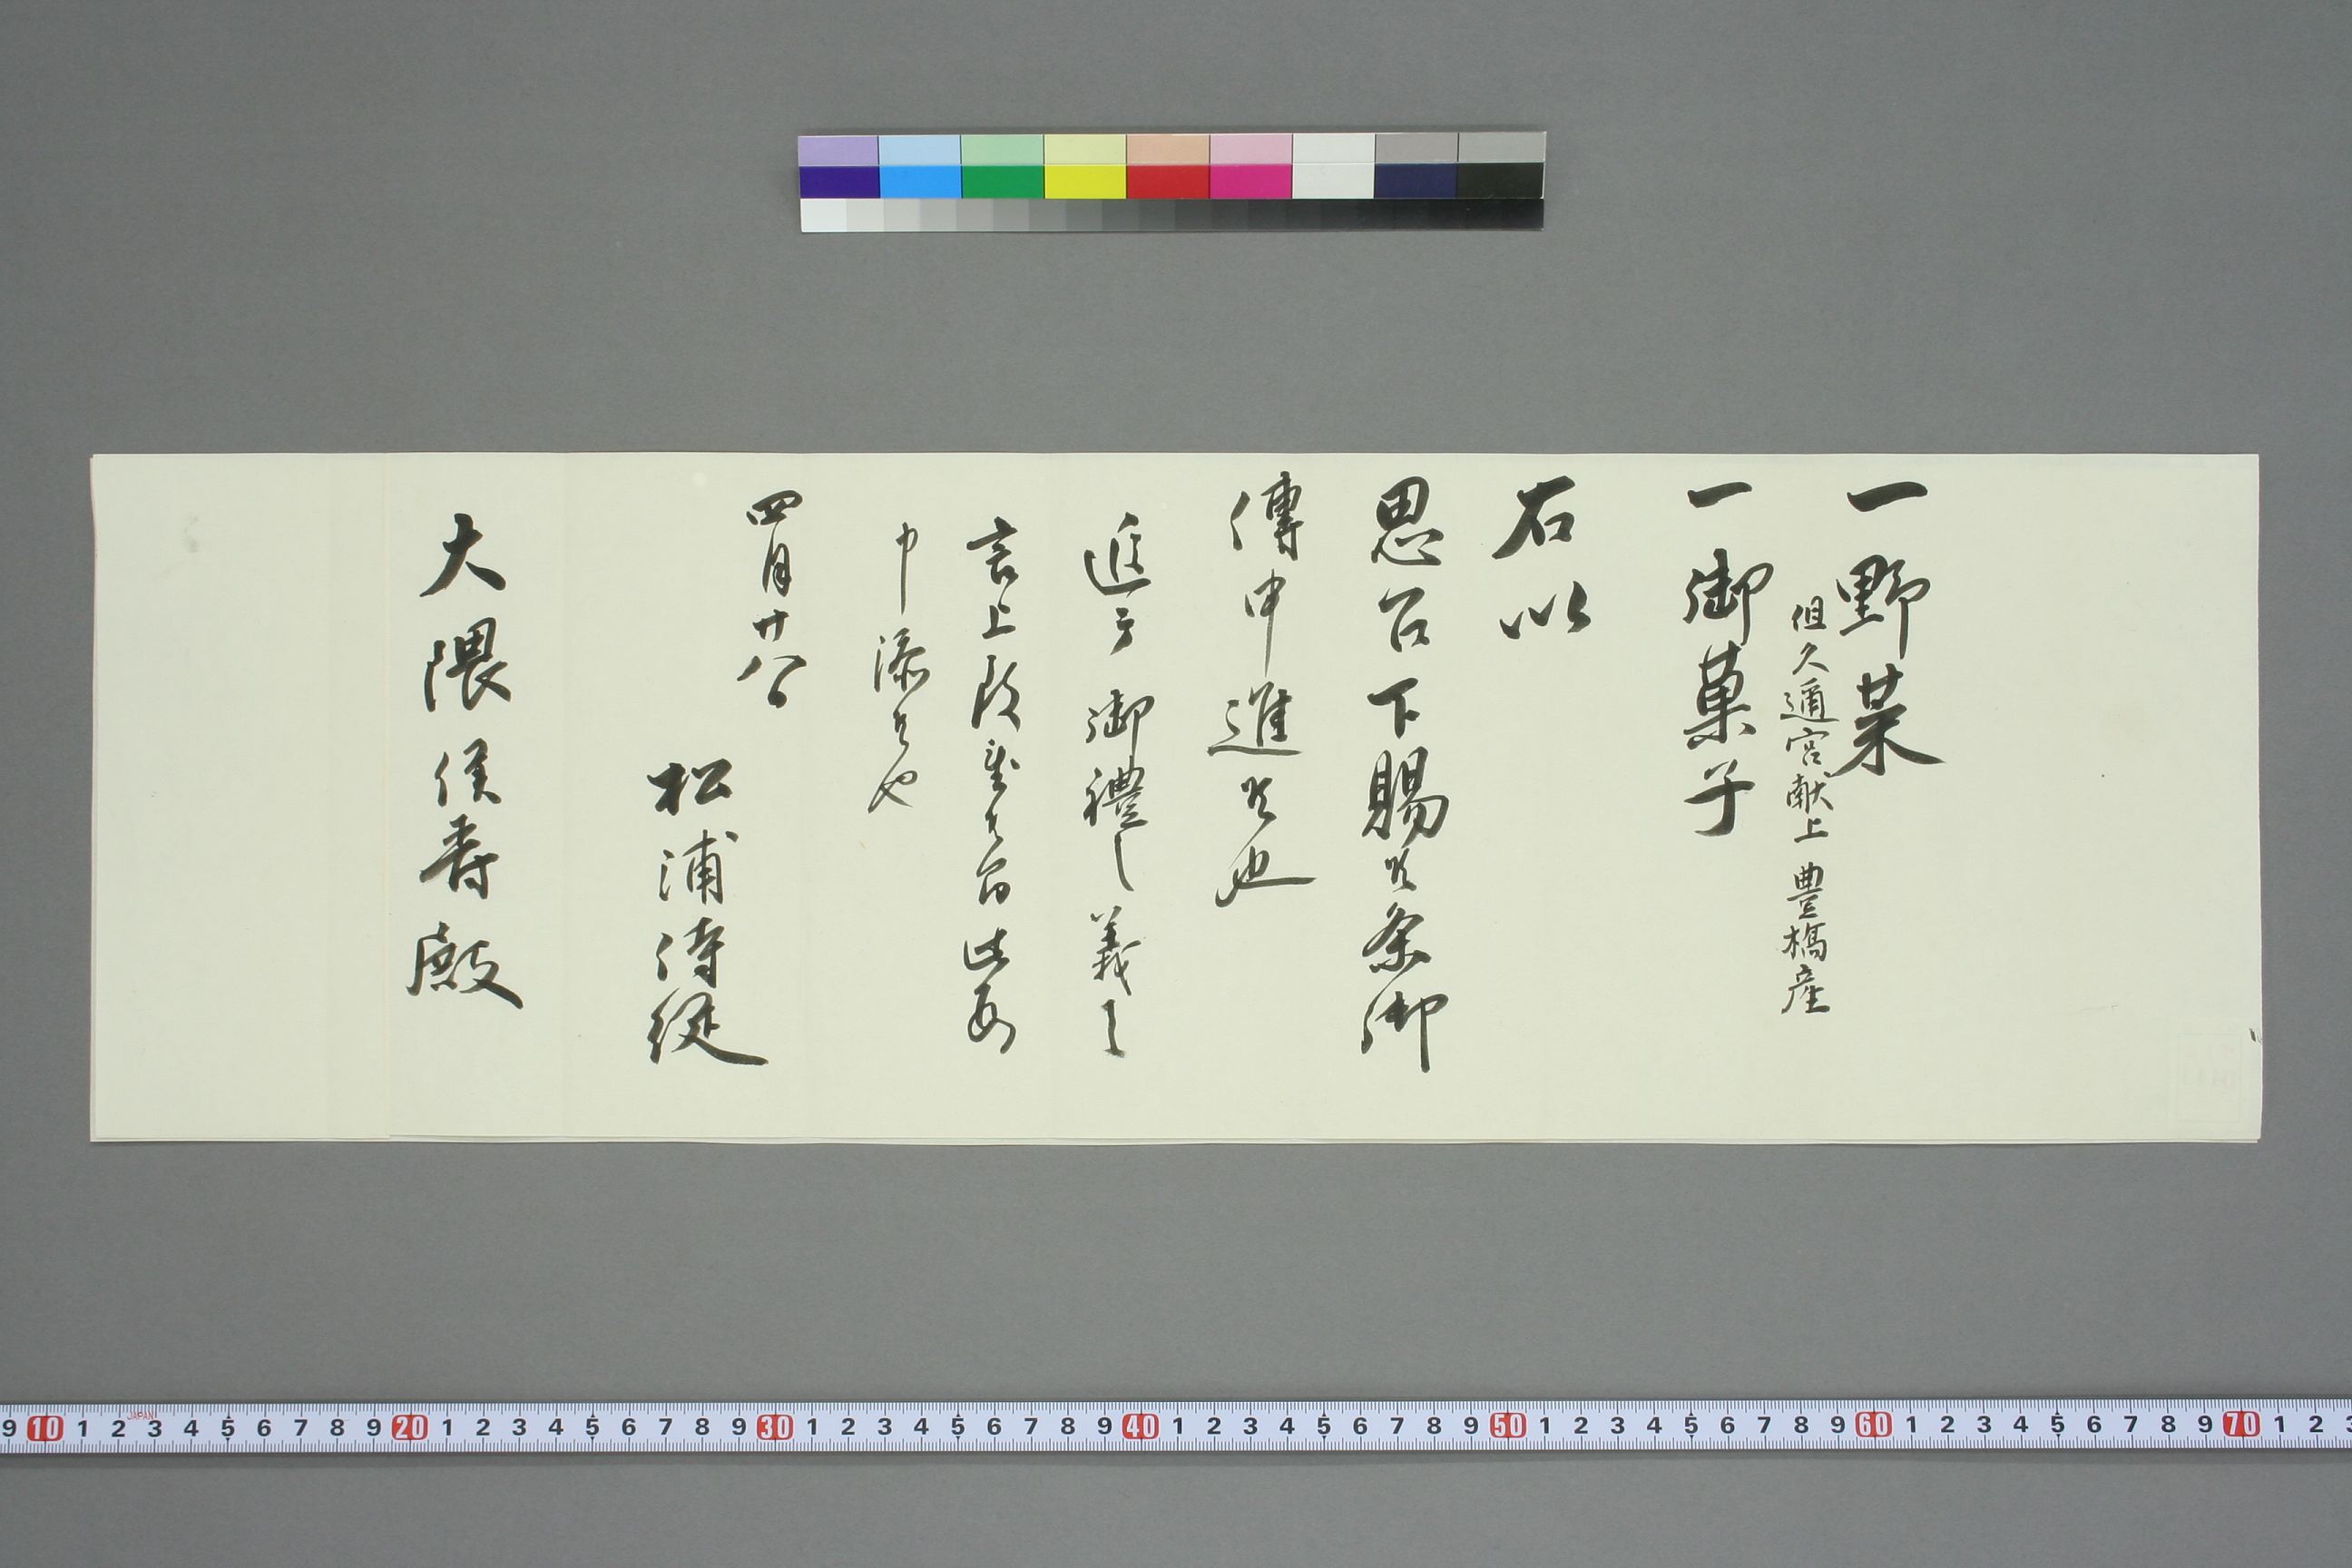 一野菜
但久邇宮献上 豊橋産
一御菓子
右以
思召下賜候条御
傳申進候也
追テ御禮之義ハ
言上致置候間此段
申添候也
四月廿八日
松浦侍従
大隈侯爵殿
JAPAN
9 10 1 2 3 4 5 6 7 8 9 20 1 2 3 4 5 6 7 8 9 30 1 2 3 4 5 6 7 8 9 40 1 2 3 4 5 6 7 8 9 50 1 2 3 4 5 6 7 8 9 60 1 2 3 4 5 6 7 8 9 70 1 2 3